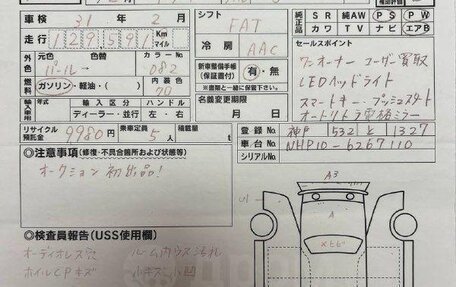 車検 31年 2月
走行 129591 Km マイル
外色 元色 色替 カラーNo
パール→ 082
内装色 70
燃料 ガソリン・軽油・( )
輸入区分 ハンドル
ディーラー・並行 左・右
リサイクル預託金 9980円 乗車定員 5人 積載量 t
シフト FAT
冷房 AAC
新車整備手帳(保証書付) 有・無
※書類と一緒に保管して下さい。
名義変更期限
月 日
純正品 SR 純AW PS PW
カワ TV ナビ エアB
セールスポイント
ワンオーナー ユーザー買取
LEDヘッドライト
スマートキー・プッシュスタート
オートリトラ電格ミラー
登録No 神戸 532 と 1327
車台No NHP10-6267110
シリアルNo
◎注意事項(修復・不具合箇所および状態等)
オークション初出品!
◎検査員報告(USS使用欄)
オーディオレス穴 ルーム内ウス汚れ
ホイルCPキズ 小キズ小凹
A3
U1
A
×ヒビ